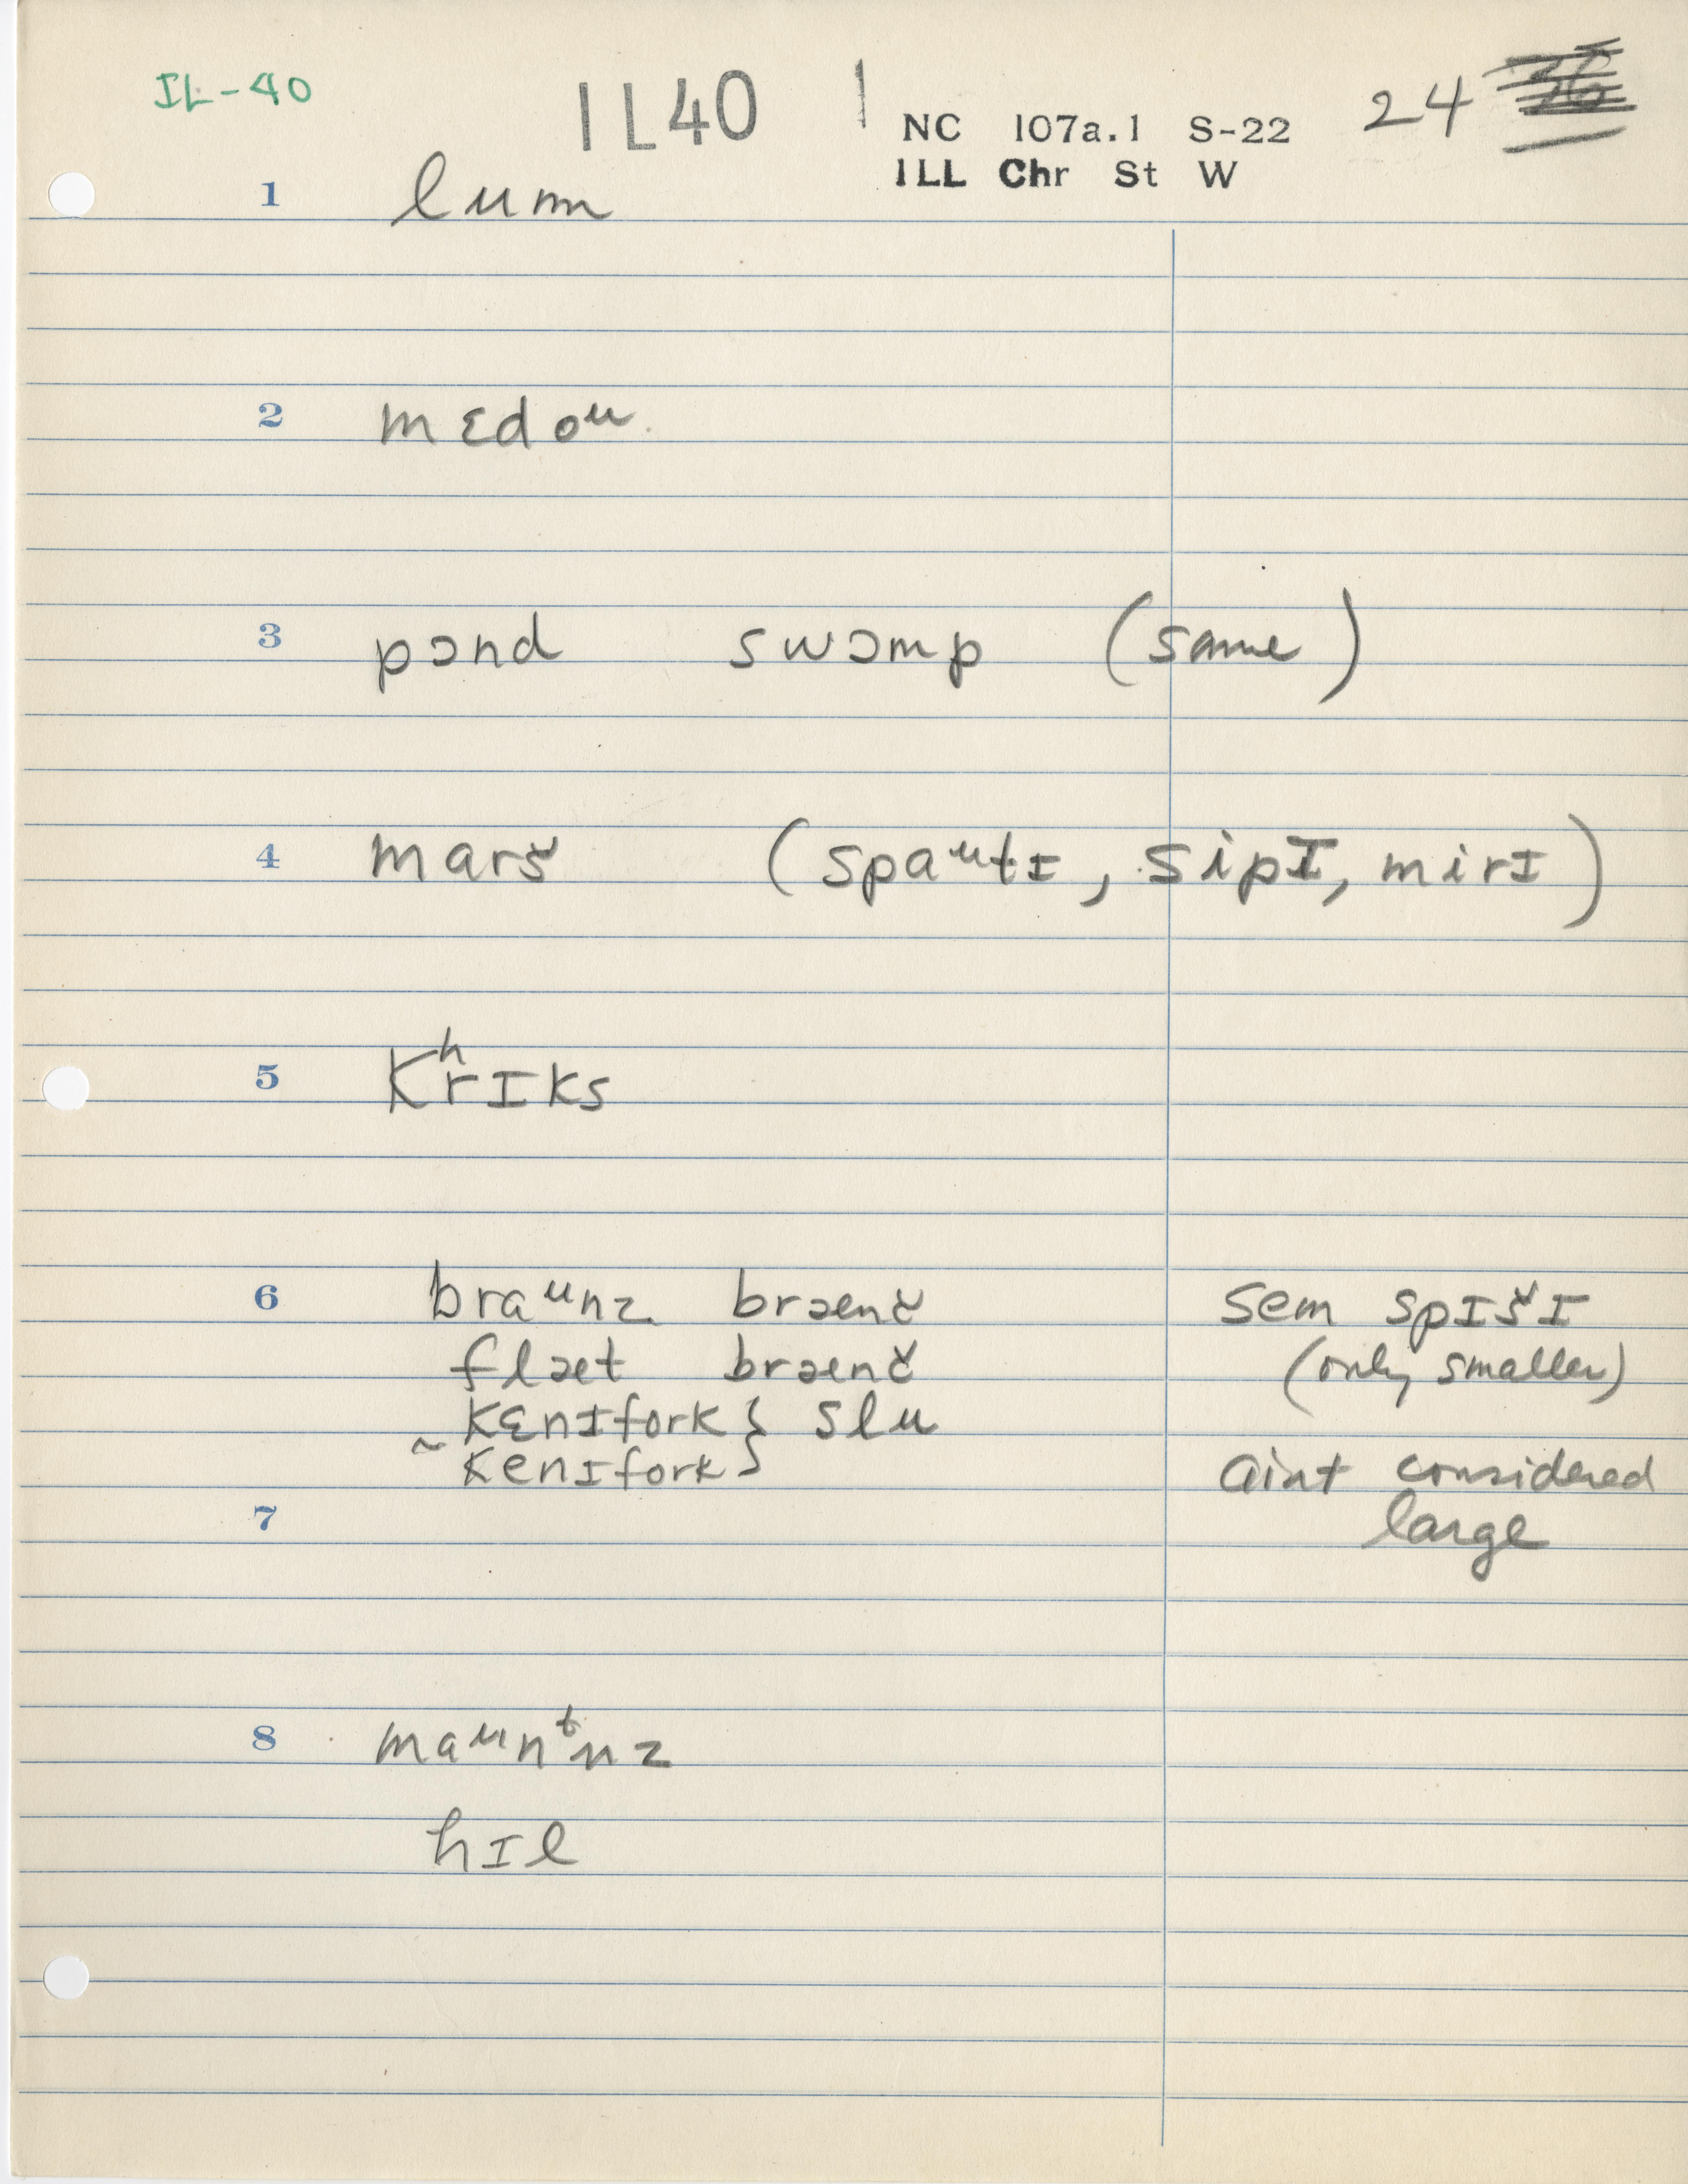 IL-40 IL40 1 24
NC 107a.1 S-22
ILL Chr St W
1 lum
2 mɛdoᵘ
3 pɔnd swɔmp (same)
4 marš (spaᵘtɪ, sipɪ, mirɪ)
5 Kʰrɪks
6 braᵘnz brænč sem spɪšɪ
flæt brænč (only smaller)
kɛnɪfork } slu
~ kenɪfork } aint considered
7 large
8 maᵘnᵗnz
hɪl